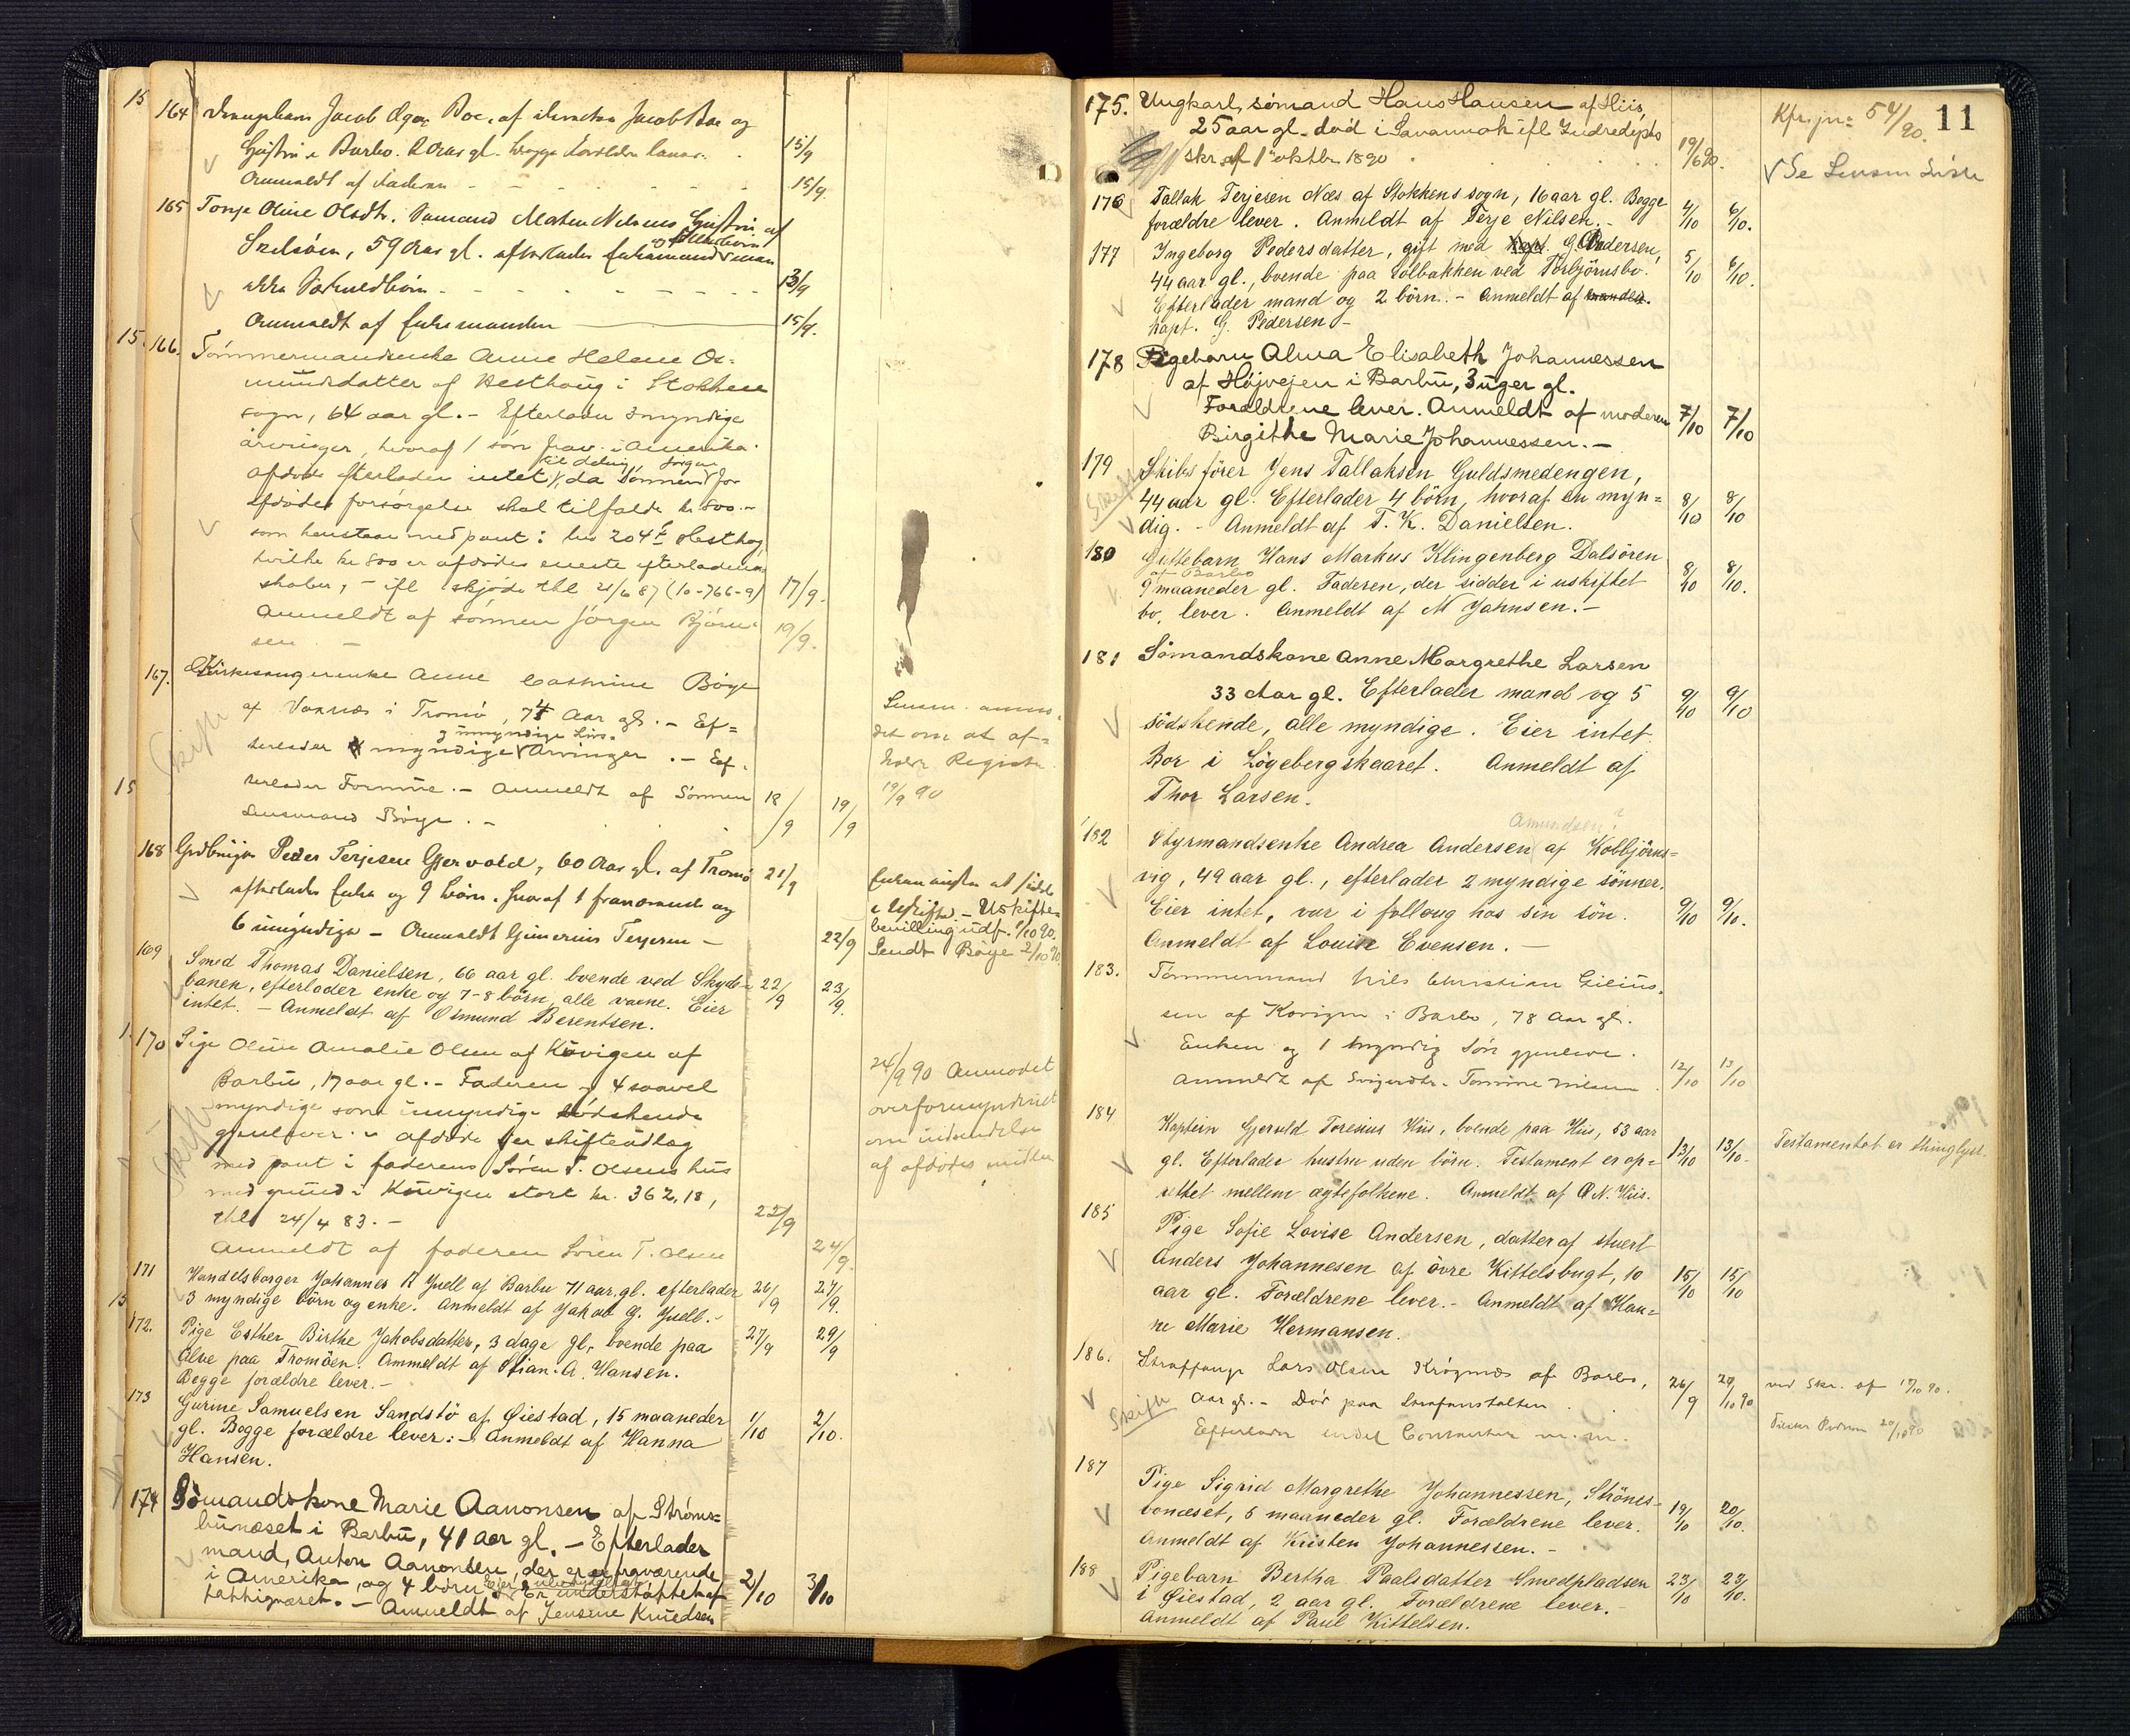 164 Drengebarn Jacob Boe, af Jacob Boe og
Barbo. gl. Begge
Anmeldt af faderen
15/9
15/9
165 Tonje Oline Olsdtr.
59 Aar gl. efterlader
Anmeldt af
13/9
15/9.
166. Tömmermandsenke Anne Helene Os=
mundsdatter af Hesthaug i Stokken
sogn, 64 aar gl. - Efterlader myndige
arvinger, hvoraf 1 sön frav. i Amerika.
afdöde efterlader intet til deling, da sönnen Jörgen for
afdödes forsörgelse skal tilfalde kr 800.-
som henstaar med pant i
hvilke kr 800 er afdödes eneste efterladen=
skaber, - ifl skjöde thl 21/6 87 (10-766-9)
Anmeldt af sönnen Jörgen Björn=
sen -
17/9.
19/9.
167. Kirkesangerenke Anne Cathrine Böye
af Vaxnæs i Tromö, 74 Aar gl. - Ef=
og umyndige Livs=
terlader myndige Arvinger. - Ef=
terlader Formue. - Anmeldt af Sönnen
Lensmand Böye. -
Skifte
18/9
19/9
Lensm. anmo=
det om at af=
holde Registr.
19/9 90
168 Gvdbruger Peder Terjesen Gjervold, 60 Aar gl. af Tromö
efterlader Enke og 9 börn, hvoraf 1 fraværende og
6 umyndige - Anmeldt Terjesen -
21/9
22/9
Enken at sidde
i Uskifte. - Uskifte=
bevilling udf. 1/10 90.
Sendt Böye 2/10 90.
169 Smed Thomas Danielsen, 66 aar gl. boende ved Skyde=
banen, efterlader enke og 7-8 börn, alle vaxne. Eier
intet. - Anmeldt af Osmund Berentsen.
22/9
23/9.
170 Pige Oline Amalie Olsen af Kuvigen af
Barbu, 17 aar gl. - Faderen og 4 saavel
myndige som umyndige södskende
gjenlever. - afdöde eier skifteudlæg
med pant i faderens Sören T. Olsens hus
med grund i Kuvigen stort kr. 362,18,
thl 24/4 83. -
Anmeldt af faderen Sören T. Olsen
Skifte
22/9
24/9.
24/9 90 Anmodet
overformynderiet
om indsendelse
af afdödes midler
171 Handelsborger Johannes R Juell af Barbu 71 aar gl. efterlader
3 myndige börn og enke. Anmeldt af Jakob G. Juell. -
26/9
27/9.
172. Pige Esther Birthe Jakobsdatter, 3 dage gl, boende paa
Alve paa Tromöen. Anmeldt af Stian. A. Hansen.
Begge forældre lever. -
27/9
29/9
173 Gurine Samuelsen Sandstö af Öiestad, 15 maaneder
gl. Begge forældre lever: - Anmeldt af Hanna
Hansen.
1/10
2/10.
174 Sömandskone Marie Aanonsen af Ströms=
bunæset i Barbu, 41 aar gl. - Efterlader
mand, Anton Aanonsen, der er fraværende
i Amerika, og 4 börn Er understöttet af
fattigvæset. - Anmeldt af Jensine Knudsen
2/10
3/10
11
175. Ungkarl, sömand Hans Hansen af Hiis,
25 aar gl. död i Savannah ifl Indredepts
skr af 1ste oktbr 1890
Kfr. jn: 54/90.
Se Lensm Liste
176 Tallak Terjesen Næs af Stokkens sogn, 16 aar gl. Begge
forældre lever. Anmeldt af Terje Nilsen. -
4/10
6/10.
177 Ingeborg Pedersdatter, gift med kapt. G. Pedersen,
44 aar gl., boende paa Solbakken ved Torbjörnsbo.
Efterlader mand og 2 börn. - Anmeldt af manden.
kapt. G. Pedersen -
5/10
6/10.
178 Pigebarn Alma Elisabeth Johannessen
af Höjvejen i Barbu, 3 uger gl.
Forældrene lever. Anmeldt af moderen
Birgithe Marie Johannessen. -
7/10
7/10
179 Skibsförer Jens Tallaksen Guldsmedengen,
44 aar gl. Efterlader 4 börn, hvoraf en myn=
dig. - Anmeldt af T. K. Danielsen.
Skifte
8/10
8/10
180 Guttebarn Hans Markus Klingenberg Dalsören
af Barbo
9 maaneder gl. Faderen, der sidder i uskiftet
bo, lever. Anmeldt af M Jahnsen. -
8/10
8/10.
181 Sömandskone Anne Margrethe Larsen
33 Aar gl. Efterlader mand og 5
södskende, alle myndige. Eier intet
Bor i Lögebergskaaret. Anmeldt af
Thor Larsen.
9/10
9/10
Amundsen?
182 Styrmandsenke Andrea Andersen af Kolbjörns=
vig, 49 aar gl., efterlader 2 myndige sönner.
Eier intet, var i folloug hos sin sön.
Anmeldt af Louise Evensen. -
9/10
9/10.
183. Tömmermand Nils Christian
sen af Kuvigen i Barbo, 78 Aar gl.
Enken og 1 myndig Sön gjenlever.
Anmeldt af Svigerdtr. Tomine Nilsen.
12/10
13/10
184 Kaptein Gjeruld Toresius Hiis, boende paa His, 53 aar
gl. Efterlader hustru uden börn. Testament er op=
rettet mellem ægtefolkene. Anmeldt af N. Hiis.
13/10
13/10.
Testamentet er thinglyst.
185 Pige Sofie Lovise Andersen, datter af stuert
Anders Johannesen af övre Kittelsbugt, 10
aar gl. Forældrene lever. - Anmeldt af Han=
ne Marie Hermansen.
15/10
15/10
186. Straffange Lars Olsen Krögenæs af Barbo,
Aar gl. - Död paa Strafanstalten
Efterlader endel Contanter m.m.
Skifte
26/9
20/10 90
ved Skr. af 17/10 90.
187 Pige Sigrid Margrethe Johannessen, Ströms=
bonæset, 5 maaneder gl. Forældrene lever.
Anmeldt af Kristen Johannessen. -
19/10
20/10.
188 Pigebarn Bertha Paalsdatter Smedpladsen
i Öiestad, 2 aar gl. Forældrene lever. -
Anmeldt af Paul Kittelsen.
23/10
23/10.